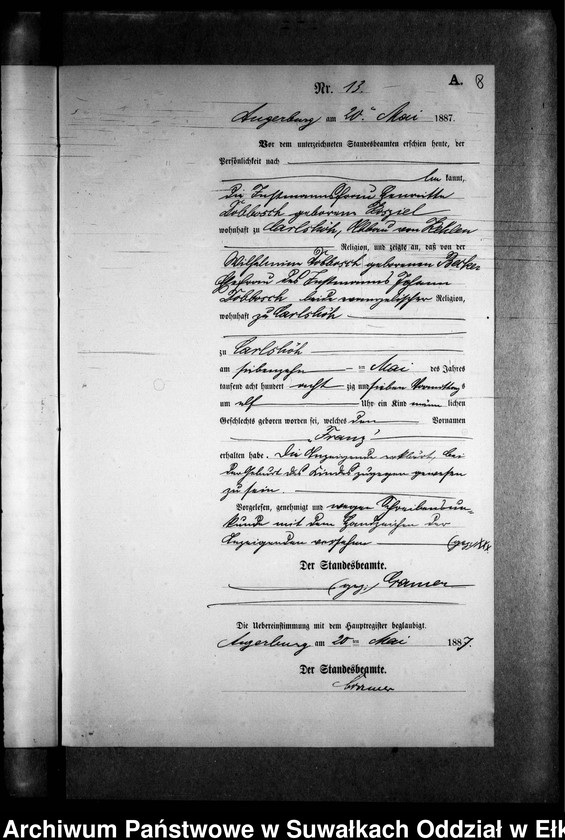 A. 8
Nr. 13.
Angerburg am 20ten Mai 1887.
Vor dem unterzeichneten Standesbeamten erschien heute, der
Persönlichkeit nach
bekannt,
die Instmannsfrau Henriette
geborene
wohnhaft zu Carlshöh, Abbau von Kehlen
Religion, und zeigte an, daß von der
Wilhelmine geborenen Becker
Ehefrau des Instmanns Johann
beide evangelischer Religion,
wohnhaft zu Carlshöh
zu Carlshöh
am siebenzehn ten Mai des Jahres
tausend acht hundert acht zig und sieben Vormittags
um elf Uhr ein Kind männ lichen
Geschlechts geboren worden sei, welches den Vornamen
„Franz“
erhalten habe. Die Anzeigende erklärt, bei
der Geburt des Kindes zugegen gewesen
zu sein.
Vorgelesen, genehmigt und wegen Schreibensun-
kunde mit dem Handzeichen der
Anzeigenden versehen (gez) XXX
Der Standesbeamte.
(gez.) Cramer
Die Uebereinstimmung mit dem Hauptregister beglaubigt.
Angerburg am 20ten Mai 1887.
Der Standesbeamte.
Cramer
Archiwum Państwowe w Suwałkach Oddział w Ełk